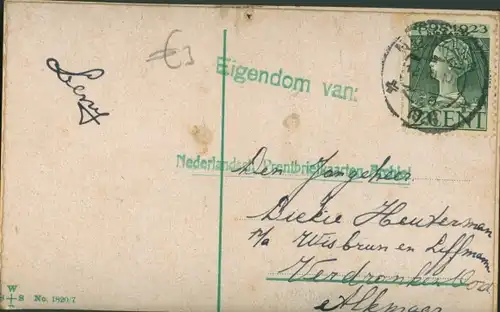 €3
Leny
Eigendom van:
Nederlandsch Prentbriefkaarten Archief
1923
2 CENT
Den Jongeheer
Dickie Heuterman
p/a Wisbrun en Liffmann
Verdronkenoord
Alkmaar
W
B S No. 1820/7